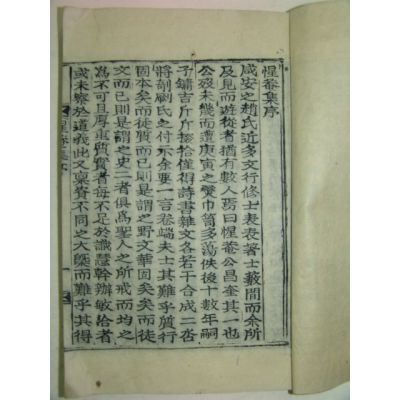 惺菴集序
咸安之趙氏近多文行修士表表著士藪間而余所
及見而遊從者猶有數人焉曰惺菴公昌奎其一也
公歿未幾而遭庚寅之變巾笥多蕩佚後十數年嗣
子鏞吉斤斤掇拾僅得詩書雜文各若干合成二㳫
將剞劂氏之付示余要一言卷端夫士其難乎質行
固本矣而徒質而已則是謂之野文華固矣矣而徒
文而已則是謂之史二者俱爲聖人之所戒而均之
爲不可且厚重質實者每不足於識慧幹辦敏給者
或未察於道義此文稟賚不同之大槩而難乎其得
惺菴集序
一